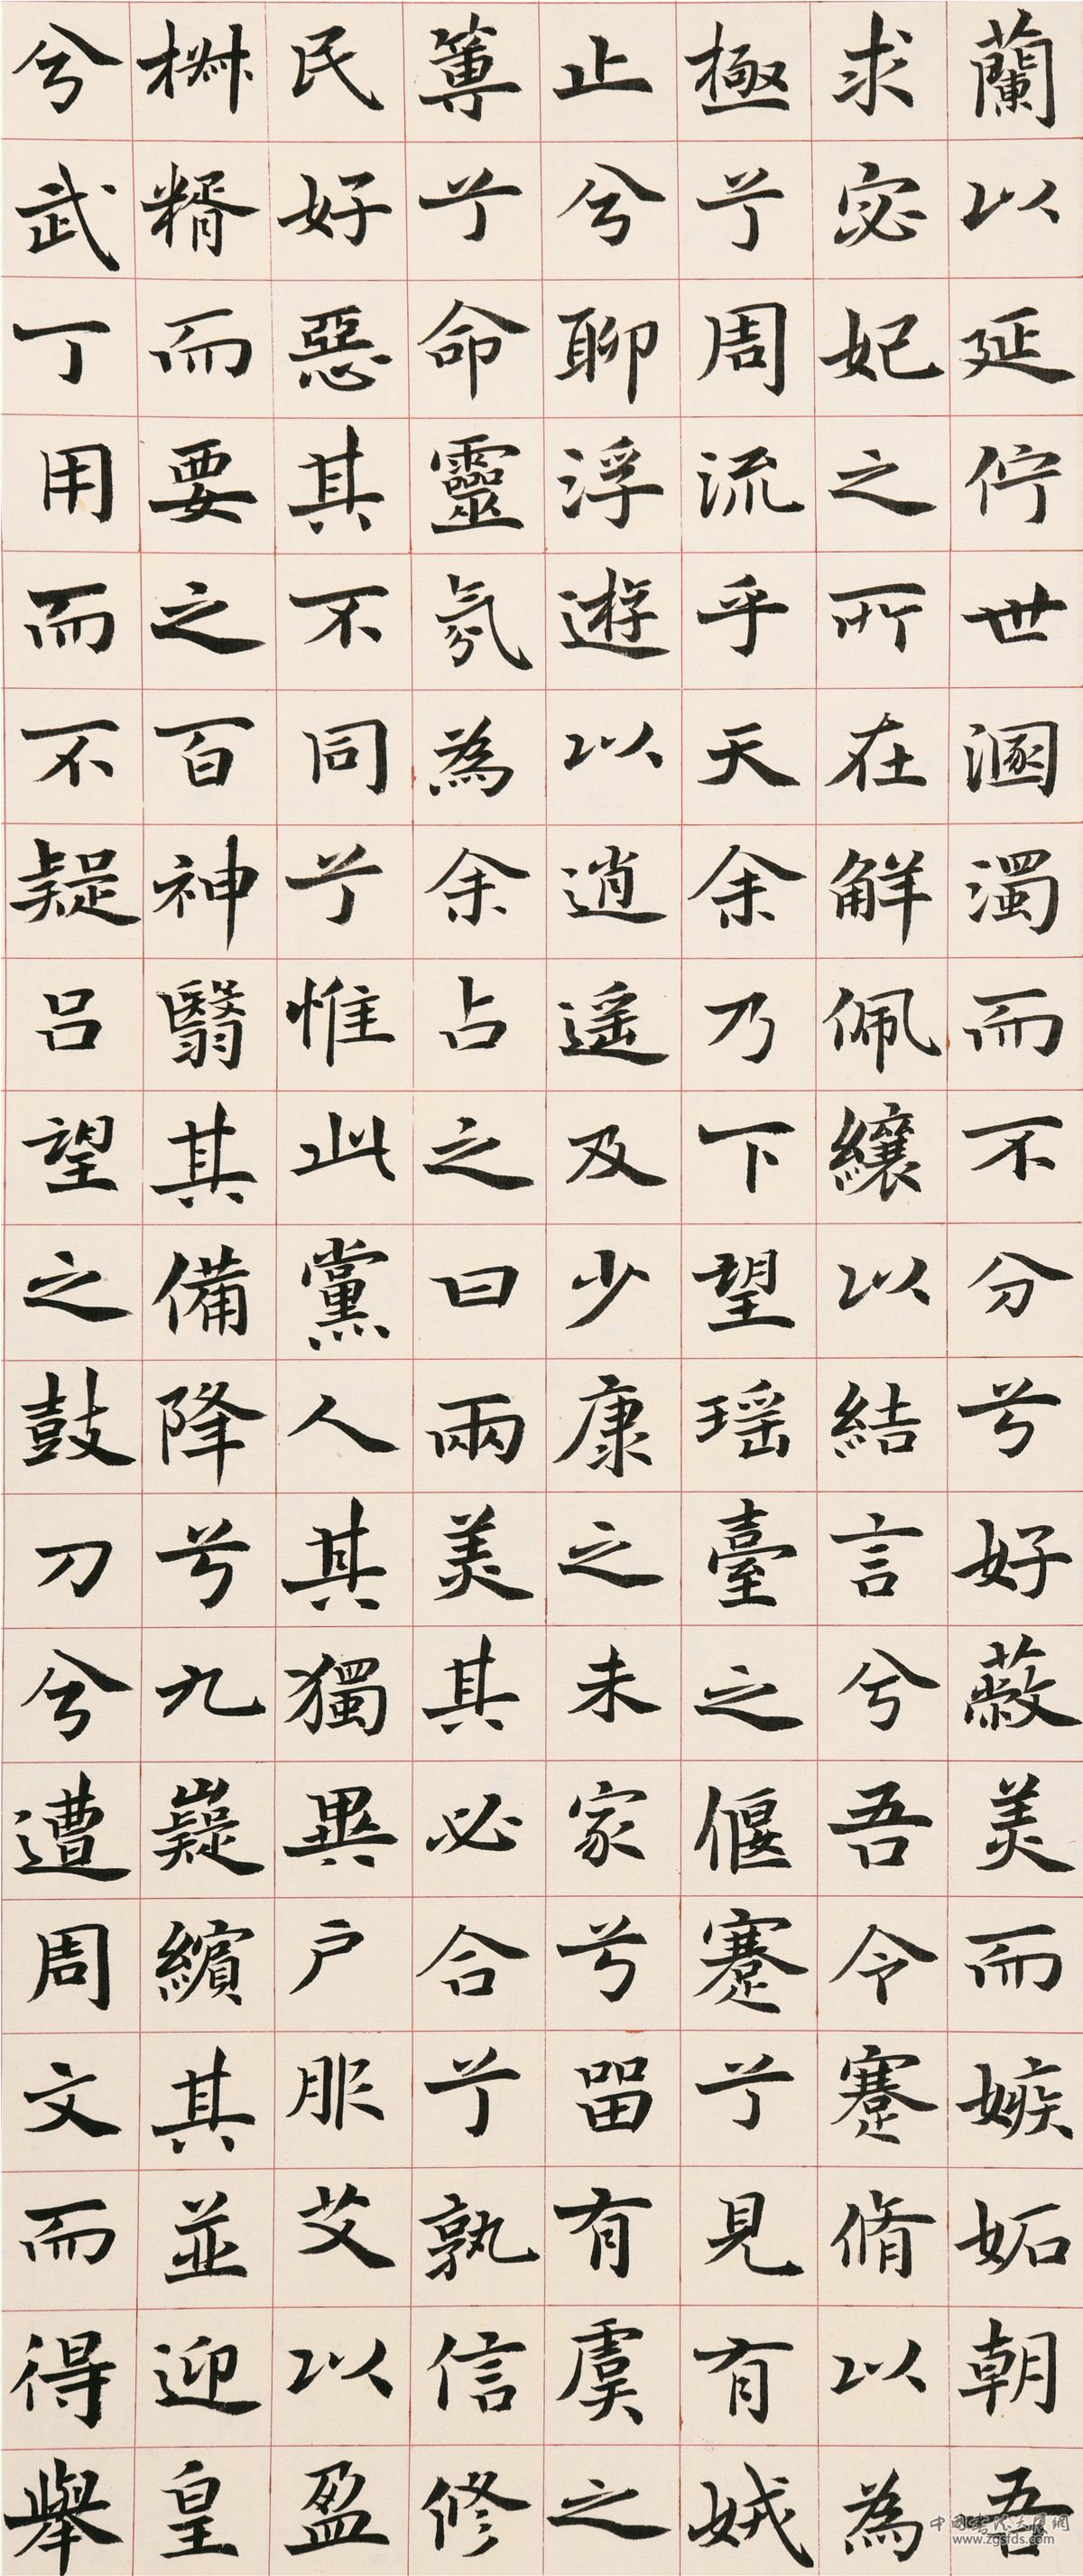 蘭以延佇世溷濁而不分兮好蔽美而嫉妬朝吾
求宓妃之所在解佩纕以結言兮吾令蹇脩以為
極兮周流乎天余乃下望瑶臺之偃蹇兮見有娀
止兮聊浮遊以逍遥及少康之未家兮留有虞之
篿兮命靈氛為余占之曰兩美其必合兮孰信修
民好惡其不同兮惟此黨人其獨異户服艾以盈
椒糈而要之百神翳其備降兮九嶷繽其並迎皇
兮武丁用而不疑呂望之鼓刀兮遭周文而得舉
中国书法大展網
www.zgsfds.com